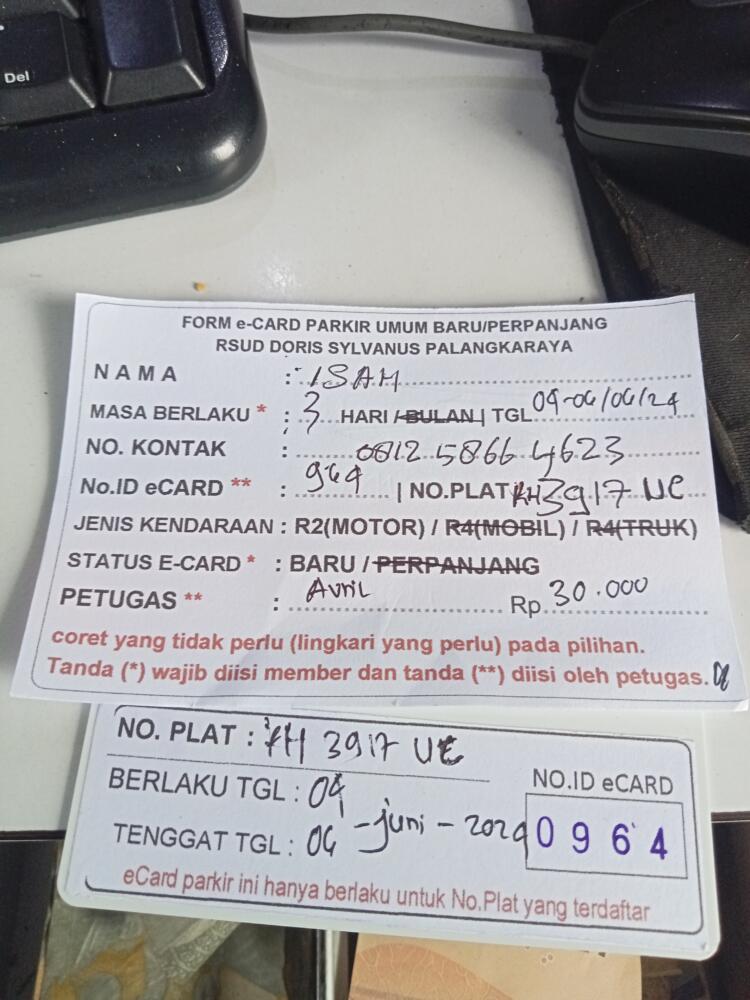 Del
FORM e-CARD PARKIR UMUM BARU/PERPANJANG
RSUD DORIS SYLVANUS PALANGKARAYA
NAMA : ISAM
MASA BERLAKU * : 3 HARI / BULAN | TGL 04-06/06/24
NO. KONTAK : 0812 5866 4623
No.ID eCARD ** : 964 | NO.PLAT KH 3917 UE
JENIS KENDARAAN : R2(MOTOR) / R4(MOBIL) / R4(TRUK)
STATUS E-CARD * : BARU / PERPANJANG
PETUGAS ** : Avril Rp. 30.000
coret yang tidak perlu (lingkari yang perlu) pada pilihan.
Tanda (*) wajib diisi member dan tanda (**) diisi oleh petugas.
NO. PLAT : KH 3917 UE
BERLAKU TGL : 04
TENGGAT TGL : 06 - juni - 2024
NO.ID eCARD
0964
eCard parkir ini hanya berlaku untuk No.Plat yang terdaftar